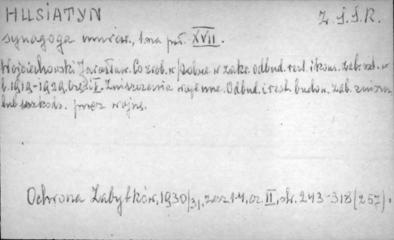 HUSIATYN Z.S.S.R.
synagoga murow., 1-na poł. XVII.
Wojciechowski Jarosław. Co zrob. w Polsce w zakr. odbud. rest. i kons. zab. szt. w
l. 1919-1929. Część I. Zniszczenia wojenne. Odbud. i rest. budow. zab. zniszcz.
lub uszkodz. przez wojnę.
Ochrona Zabytków, 1930/31, zesz 1-4, cz. II, str. 243-318 (257).